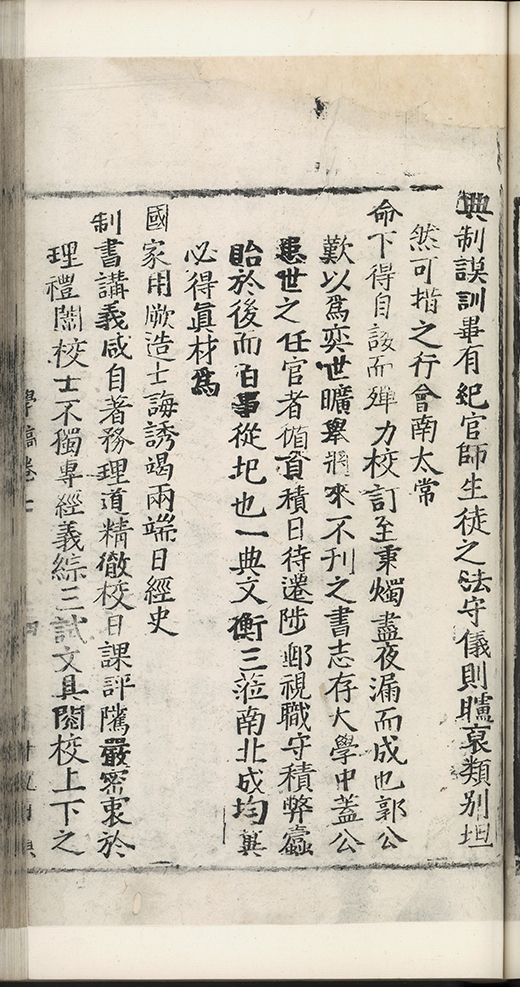 典制謨訓畢有紀官師生徒之法守儀則臚裒類別坦
然可揩之行會南太常
命下得自該而殫力校訂至秉燭盡夜漏而成也郭公
歎以爲奕世曠舉將來不刊之書志存大學中蓋公
患世之任官者循資積日待遷陟郵視職守積弊蠹
貽於後而百事從圯也一典文衡三蒞南北成均冀
必得眞材爲
國家用厥造士誨誘竭兩端日經史
制書講義咸自著務理道精徹校日課評隲嚴密衷於
理禮闈校士不獨專經義綜三試文具閱校上下之
稿卷七